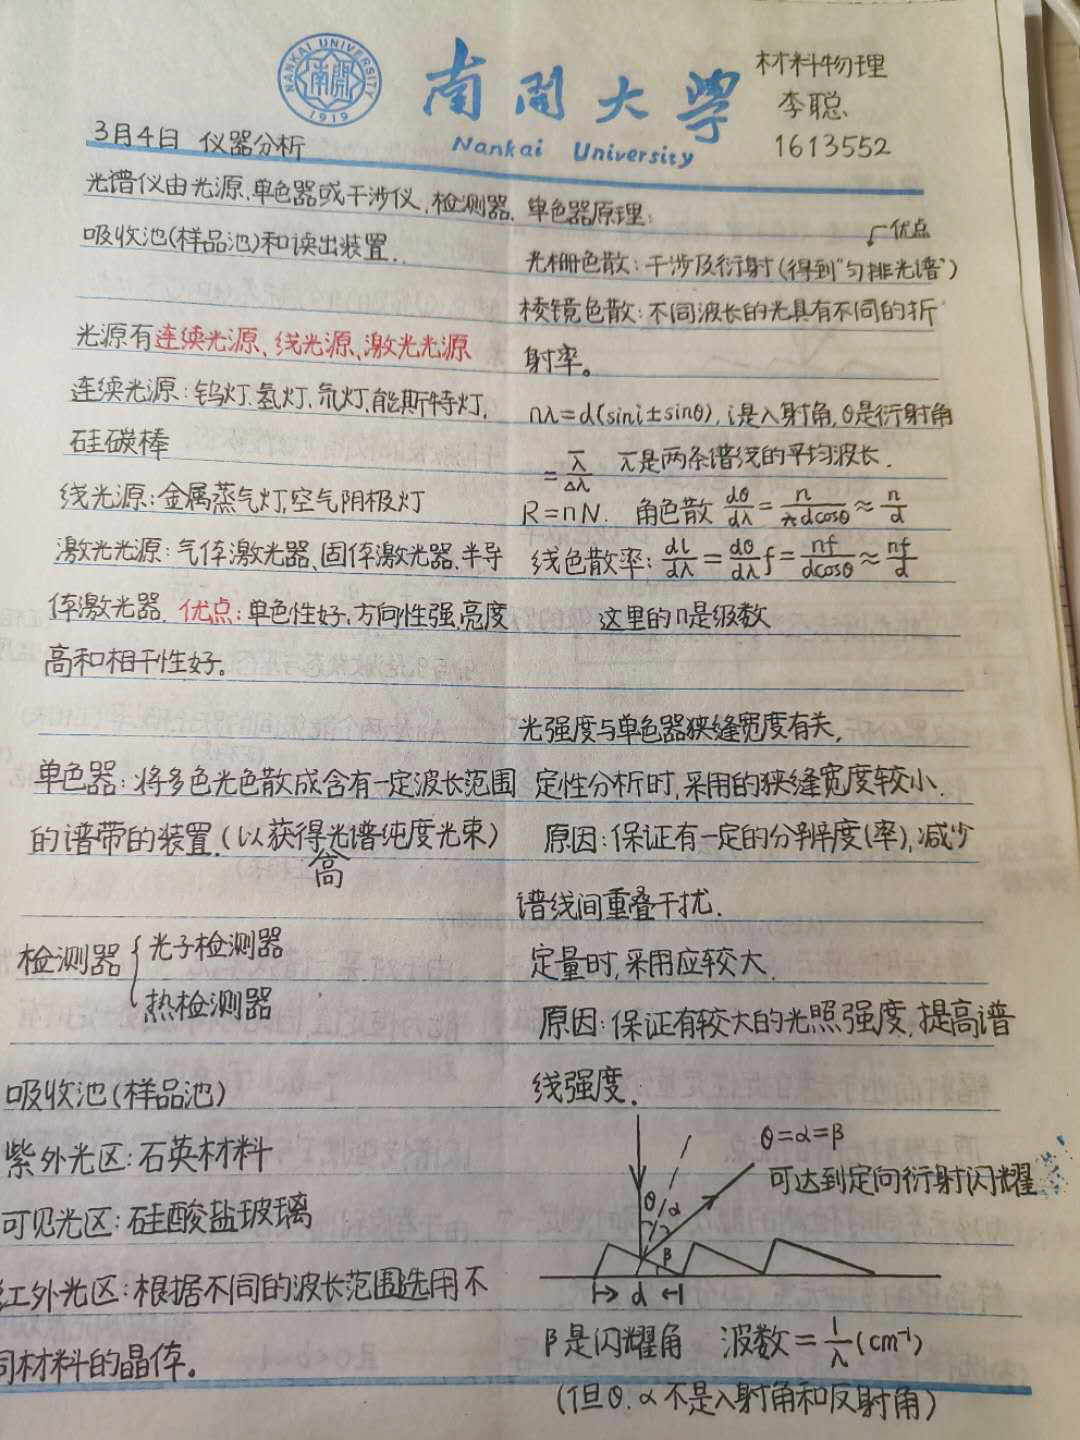 NANKAI UNIVERSITY
南開
1919
南開大學
Nankai University
材料物理
李聪
1613552
3月4日 仪器分析
光谱仪由光源、单色器或干涉仪、检测器、
吸收池(样品池)和读出装置.
光源有连续光源、线光源、激光光源
连续光源:钨灯.氢灯.氘灯.能斯特灯,
硅碳棒
线光源:金属蒸气灯,空气阴极灯
激光光源:气体激光器、固体激光器、半导
体激光器. 优点:单色性好、方向性强,亮度
高和相干性好。
单色器:将多色光色散成含有一定波长范围
的谱带的装置.(以获得光谱纯度光束)
高
检测器{光子检测器
热检测器
吸收池(样品池)
紫外光区:石英材料
可见光区:硅酸盐玻璃
红外光区:根据不同的波长范围选用不
同材料的晶体。
单色器原理:
优点
光栅色散:干涉及衍射(得到"匀排光谱")
棱镜色散:不同波长的光具有不同的折
射率。
nλ=d(sini±sinθ), i是入射角,θ是衍射角
=λ̅/Δλ λ̅是两条谱线的平均波长.
R=nN. 角色散 dθ/dλ=n/dcosθ≈n/d
线色散率: dl/dλ=dθ/dλ f=nf/dcosθ≈nf/d
这里的n是级数
光强度与单色器狭缝宽度有关,
定性分析时,采用的狭缝宽度较小.
原因:保证有一定的分辨度(率),减少
谱线间重叠干扰.
定量时,采用应较大.
原因:保证有较大的光照强度,提高谱
线强度.
θ=α=β
可达到定向衍射闪耀
θ α
β
d
β是闪耀角 波数=1/λ(cm⁻¹)
(但θ.α不是入射角和反射角)